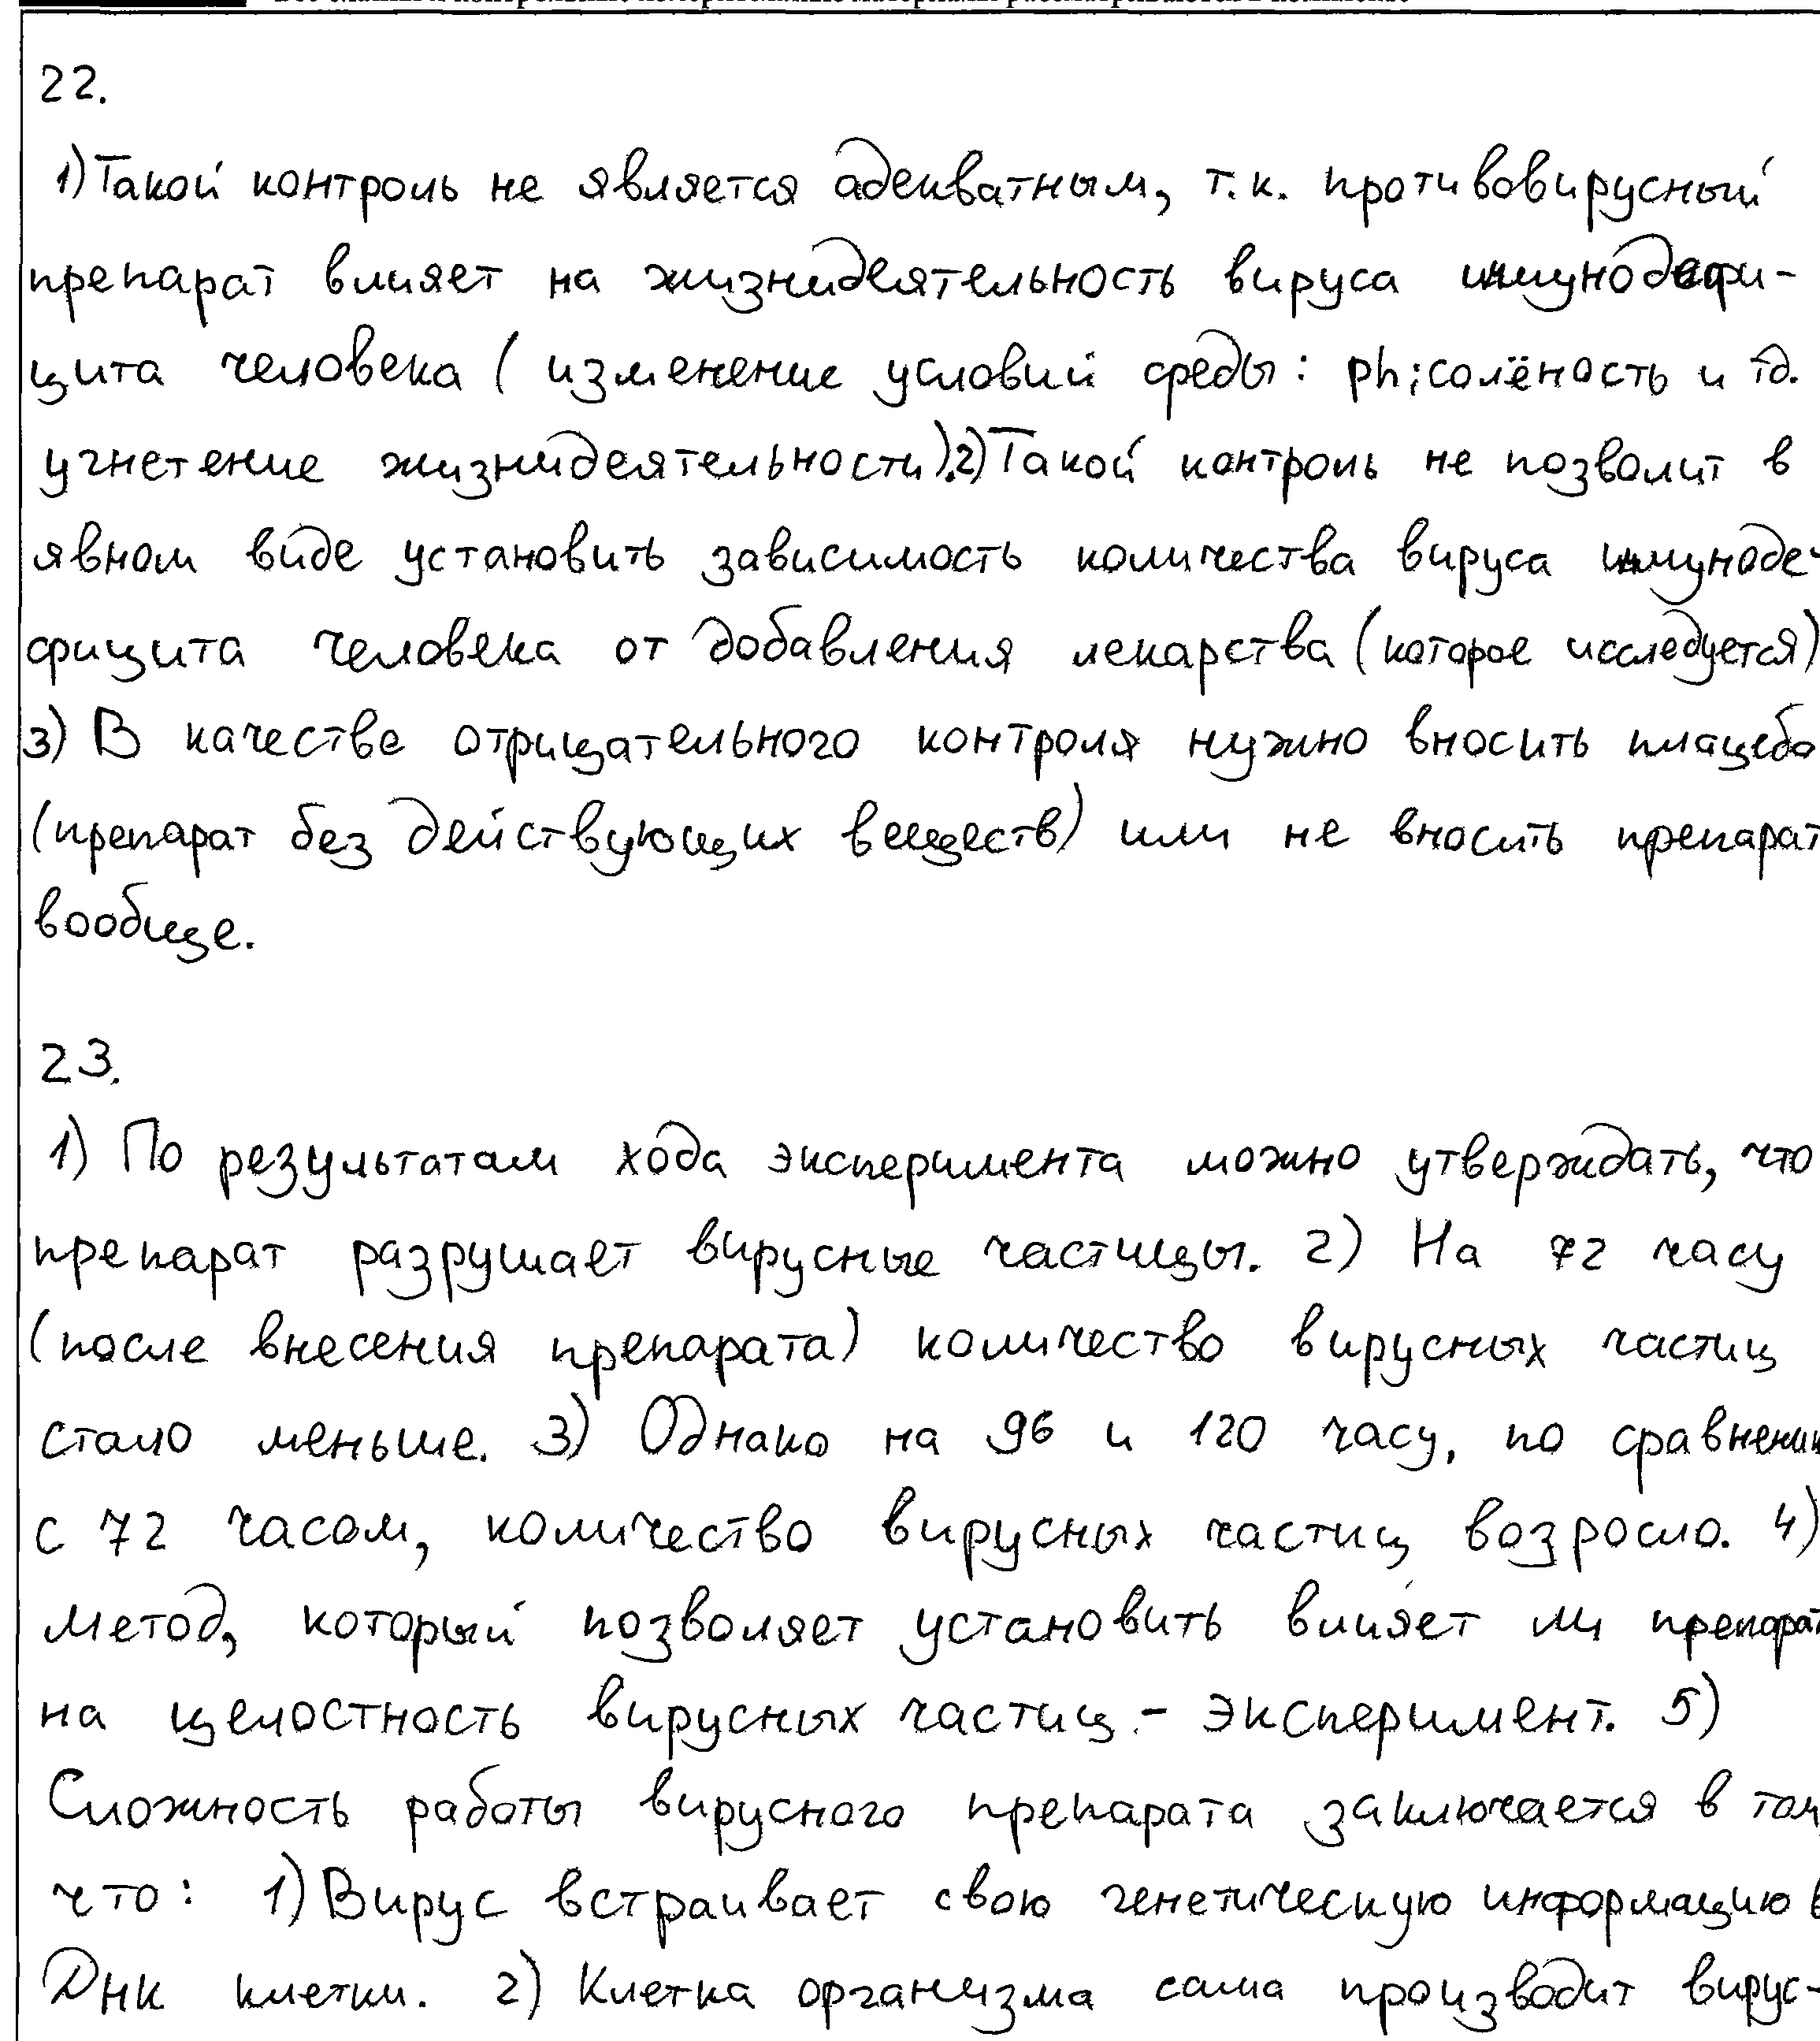 22.
1) Такой контроль не является адекватным, т.к. противовирусный
препарат влияет на жизнидеятельность вируса иммунодефи-
цита человека ( изменение условий среды: ph; солёность и т.д.
угнетение жизнидеятельности). 2) Такой контроль не позволит в
явном виде установить зависимость количества вируса иммуноде-
фицита человека от добавления лекарства (которое исследуется)
3) В качестве отрицательного контроля нужно вносить плацебо
(препарат без действующих веществ) или не вносить препарат
вообще.
23.
1) По результатам хода эксперимента можно утверждать, что
препарат разрушает вирусные частицы. 2) На 72 часу
(после внесения препарата) количество вирусных частиц
стало меньше. 3) Однако на 96 и 120 часу, по сравнению
с 72 часом, количество вирусных частиц возросло. 4)
Метод, который позволяет установить влияет ли препарат
на целостность вирусных частиц - эксперимент. 5)
Сложность работы вирусного препарата заключается в том,
что: 1) Вирус встраивает свою генетическую информацию в
ДНК клетки. 2) Клетка организма сама производит вирус-